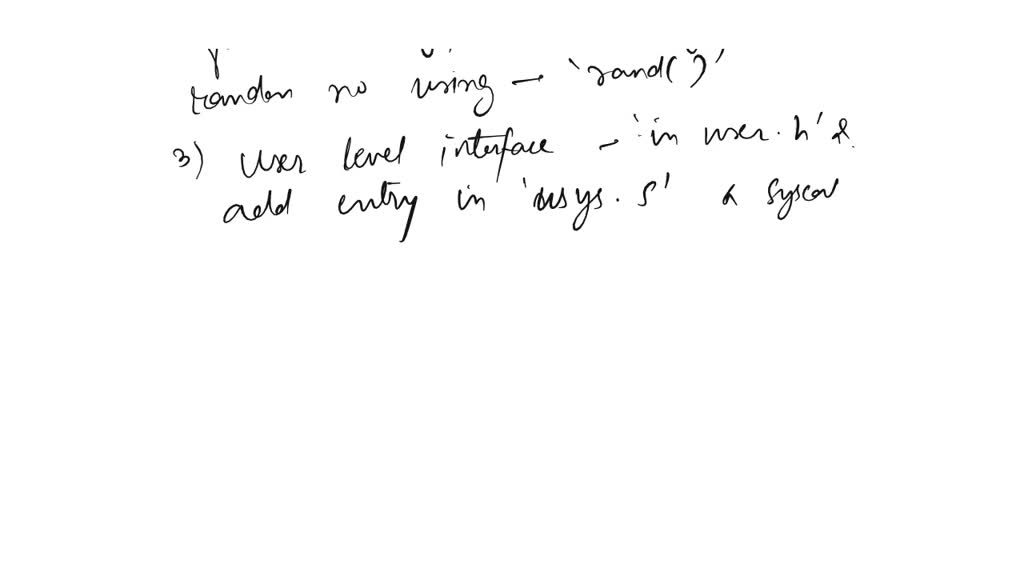 random no using → 'rand()'
3) User level interface → 'in user.h' &
add entry in 'usys.S' & Syscal